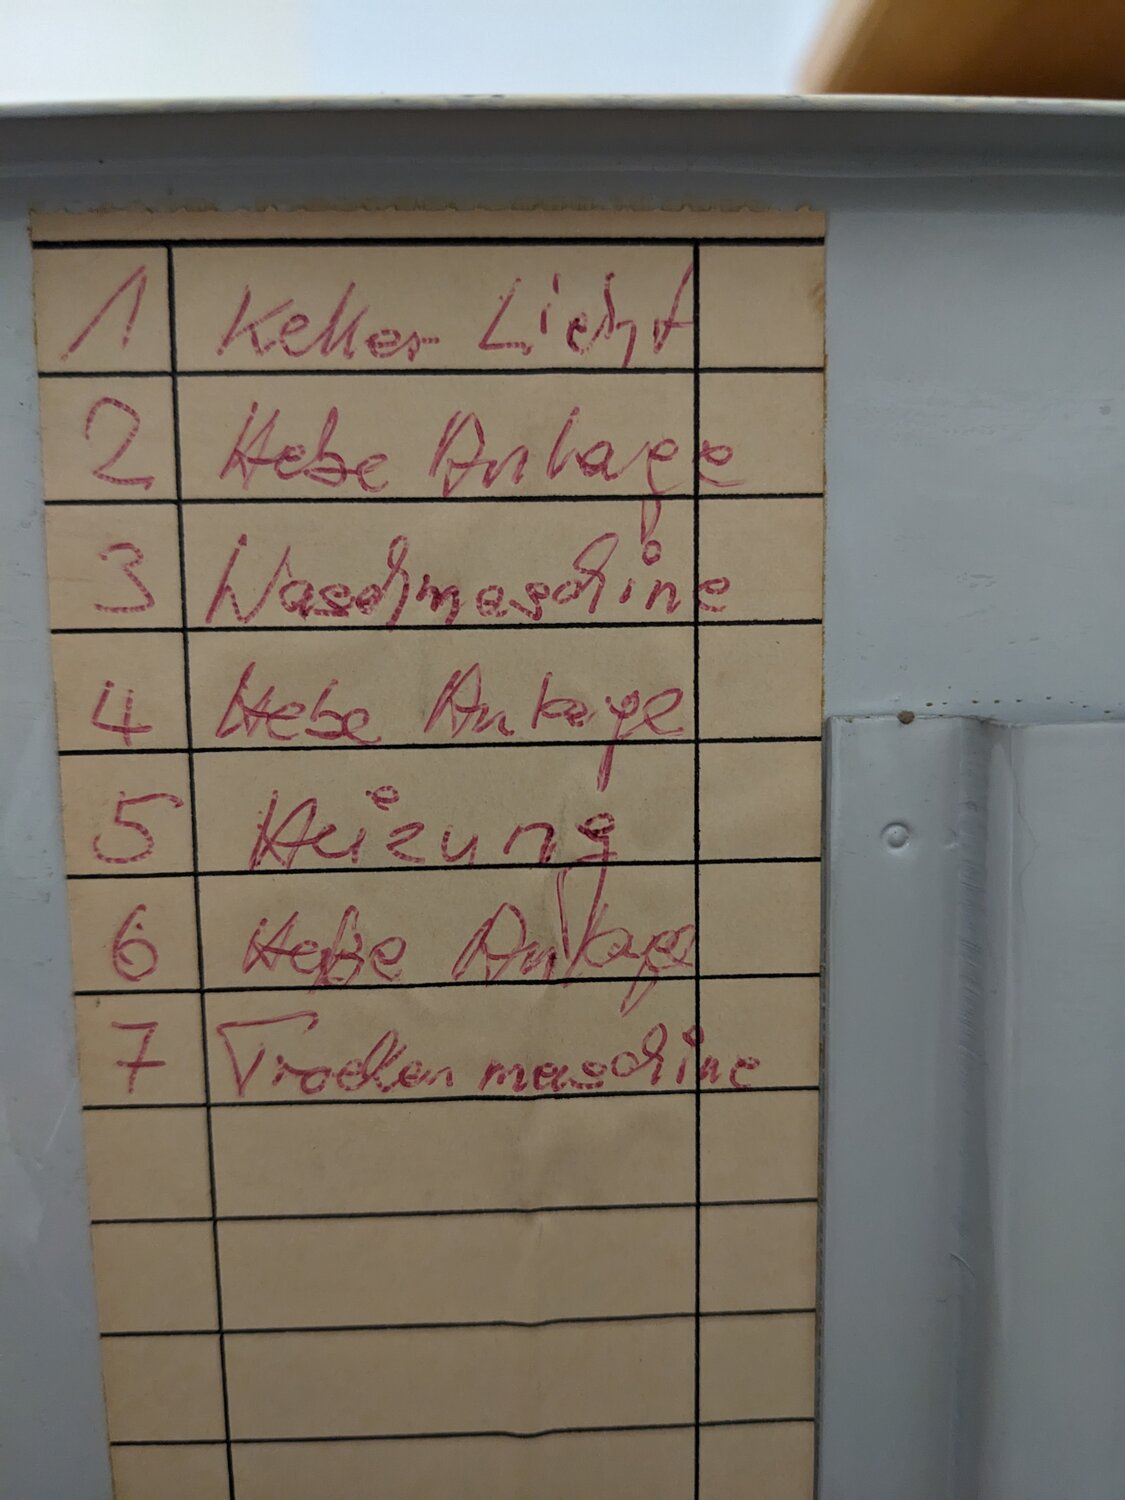 1 Keller Licht
2 Hebe Anlage
3 Waschmaschine
4 Hebe Anlage
5 Heizung
6 Hebe Anlage
7 Trocken maschine